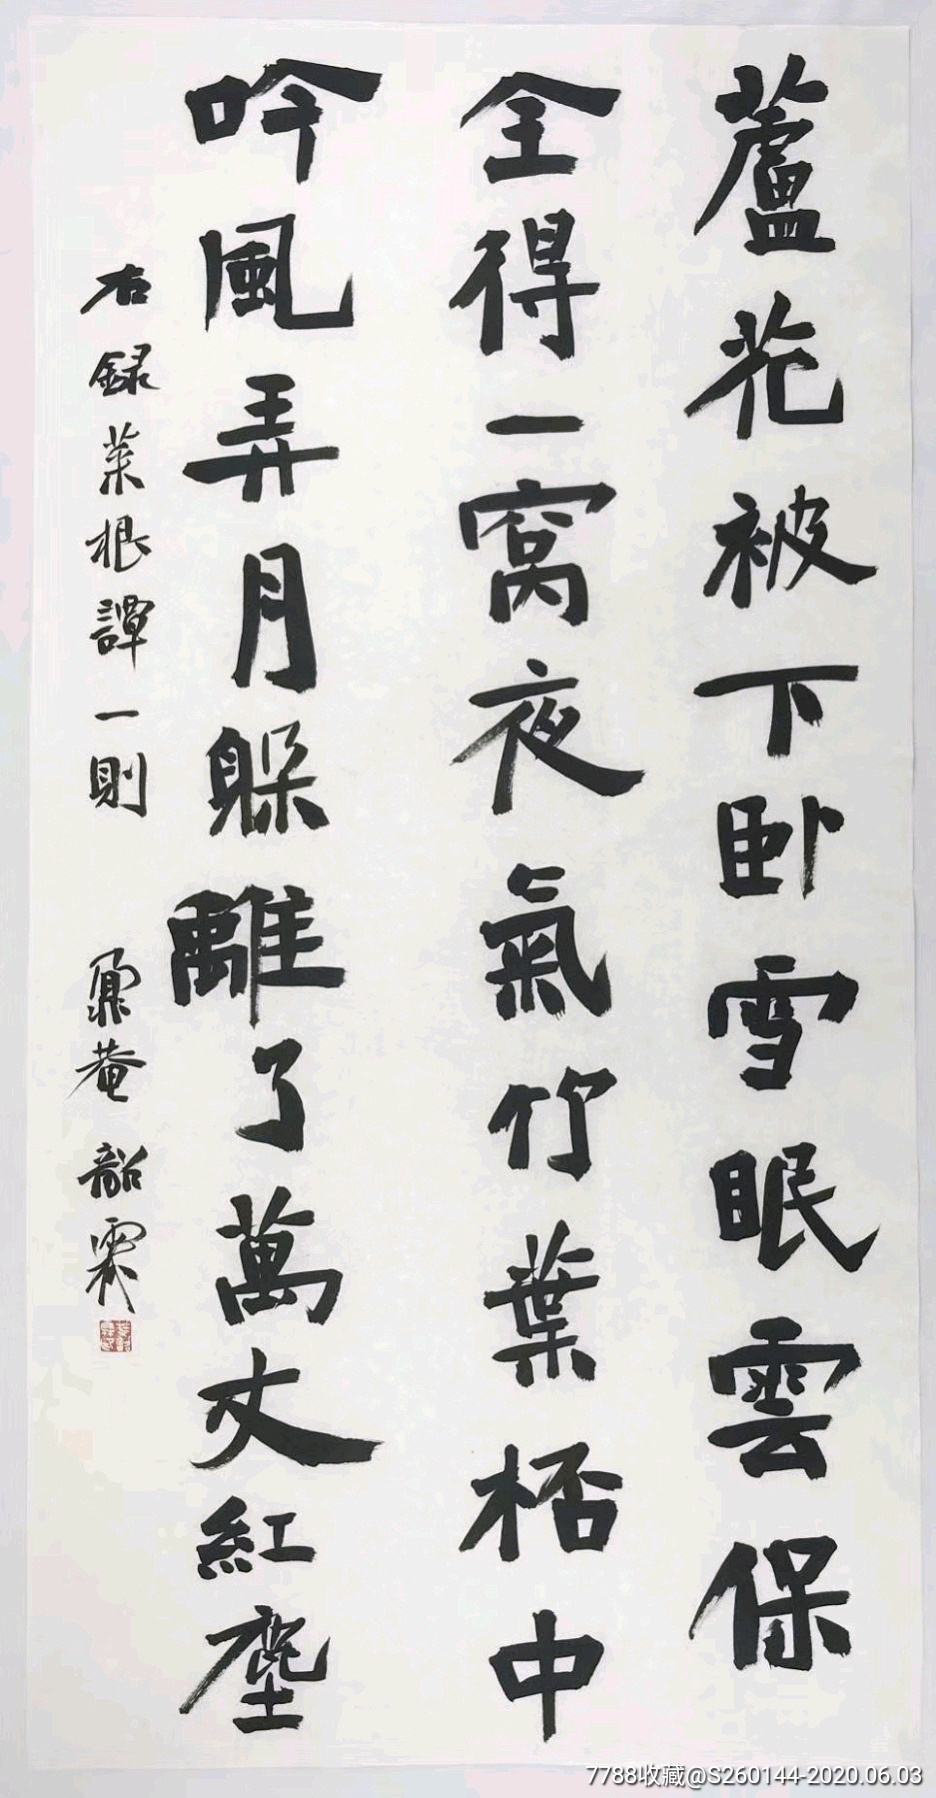 蘆花被下卧雪眠雲保
全得一窩夜氣竹葉桮中
吟風弄月躲離了萬丈紅塵
右録菜根譚一則 鼐菴 韶霖
7788收藏@S260144-2020.06.03